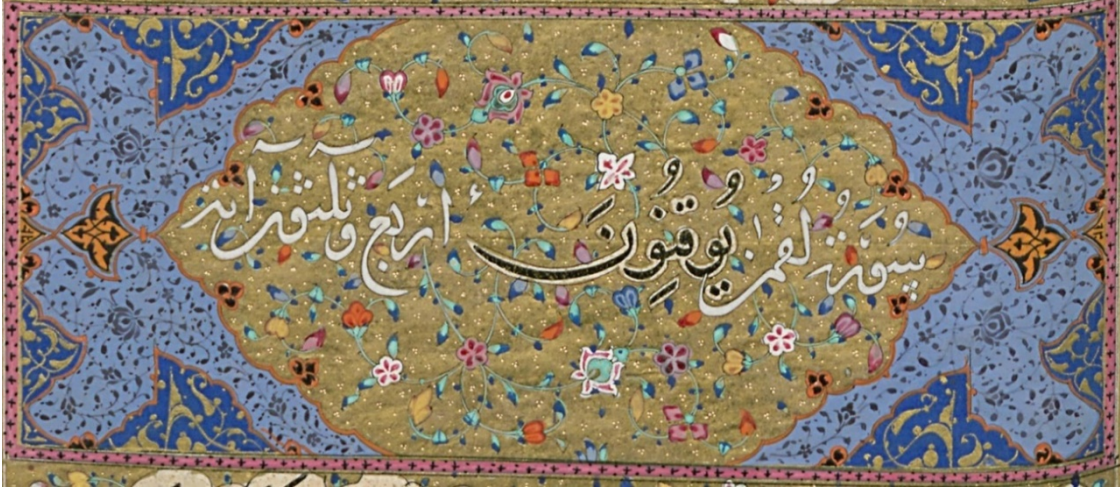 سُورَةُ لُقْمٰنَ يُوقِنُونَ أَرْبَعٌ وَثَلٰثُونَ آيَةً